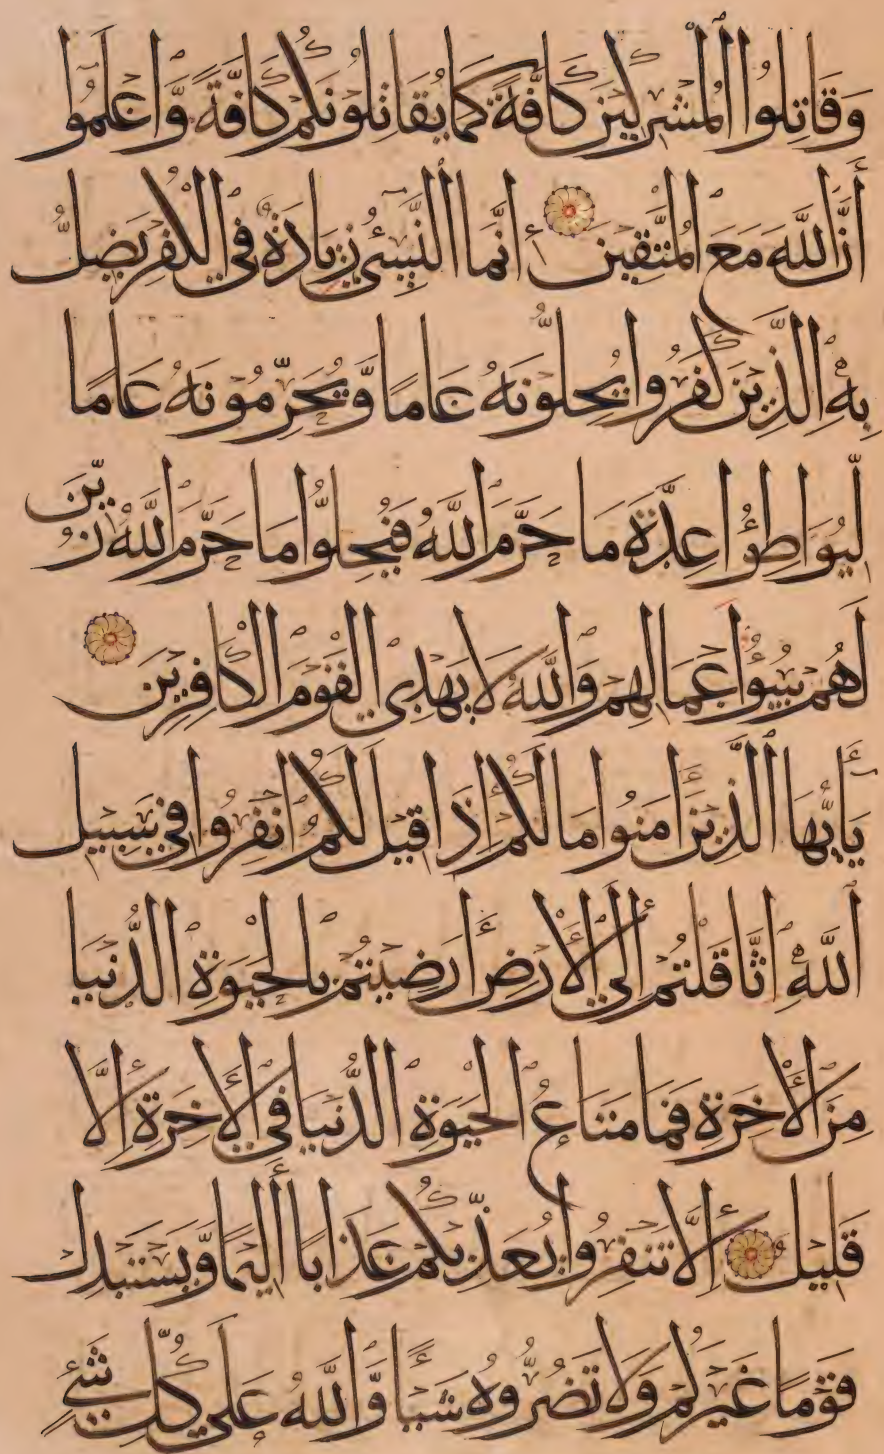 وَقَاتِلُوا الْمُشْرِكِينَ كَافَّةً كَمَا يُقَاتِلُونَكُمْ كَافَّةً وَّاعْلَمُوا
أَنَّ اللَّهَ مَعَ الْمُتَّقِينَ إِنَّمَا النَّسِىءُ زِيَادَةٌ فِي الْكُفْرِ يُضَلُّ
بِهِ الَّذِينَ كَفَرُوا يُحِلُّونَهُ عَامًا وَّيُحَرِّمُونَهُ عَامًا
لِّيُوَاطِؤُا عِدَّةَ مَا حَرَّمَ اللَّهُ فَيُحِلُّوا مَا حَرَّمَ اللَّهُ زُيِّنَ
لَهُمْ سُوءُ أَعْمَالِهِمْ وَاللَّهُ لَا يَهْدِي الْقَوْمَ الْكَافِرِينَ
يَأَيُّهَا الَّذِينَ أَمَنُوا مَا لَكُمْ إِذَا قِيلَ لَكُمُ انْفِرُوا فِي سَبِيلِ
اللَّهِ اثَّاقَلْتُمْ إِلَى الْأَرْضِ أَرَضِيتُمْ بِالْحَيَوةِ الدُّنْيَا
مِنَ الْأَخِرَةِ فَمَا مَتَاعُ الْحَيَوةِ الدُّنْيَا فِي الْأَخِرَةِ إِلَّا
قَلِيلٌ إِلَّا تَنْفِرُوا يُعَذِّبْكُمْ عَذَابًا أَلِيمًا وَّيَسْتَبْدِلْ
قَوْمًا غَيْرَكُمْ وَلَا تَضُرُّوهُ شَيْئًا وَّاللَّهُ عَلَى كُلِّ شَيْءٍ